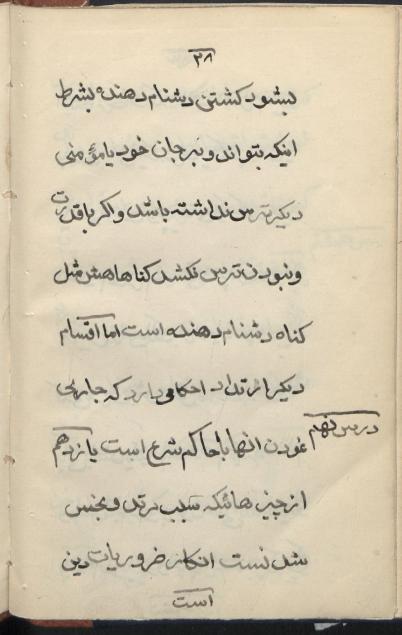 ۳۸
بشود کشتن دشنام دهنده بشرط
اینکه بتواند و بر جان خود یا مؤمنی
دیگر ترس نداشته باشد و اگر با قدرت
و نبودن ترس نکشد گناهش مثل
گناه دشنام دهنده است اما اقسام
دیگر ارتداد احکامی دارد که جاری
نمودن انها با حاکم شرع است یازدهم
درس نهم
از چیزهائیکه سبب مرتد و نجس
شدنست انکار ضروریات دین
است